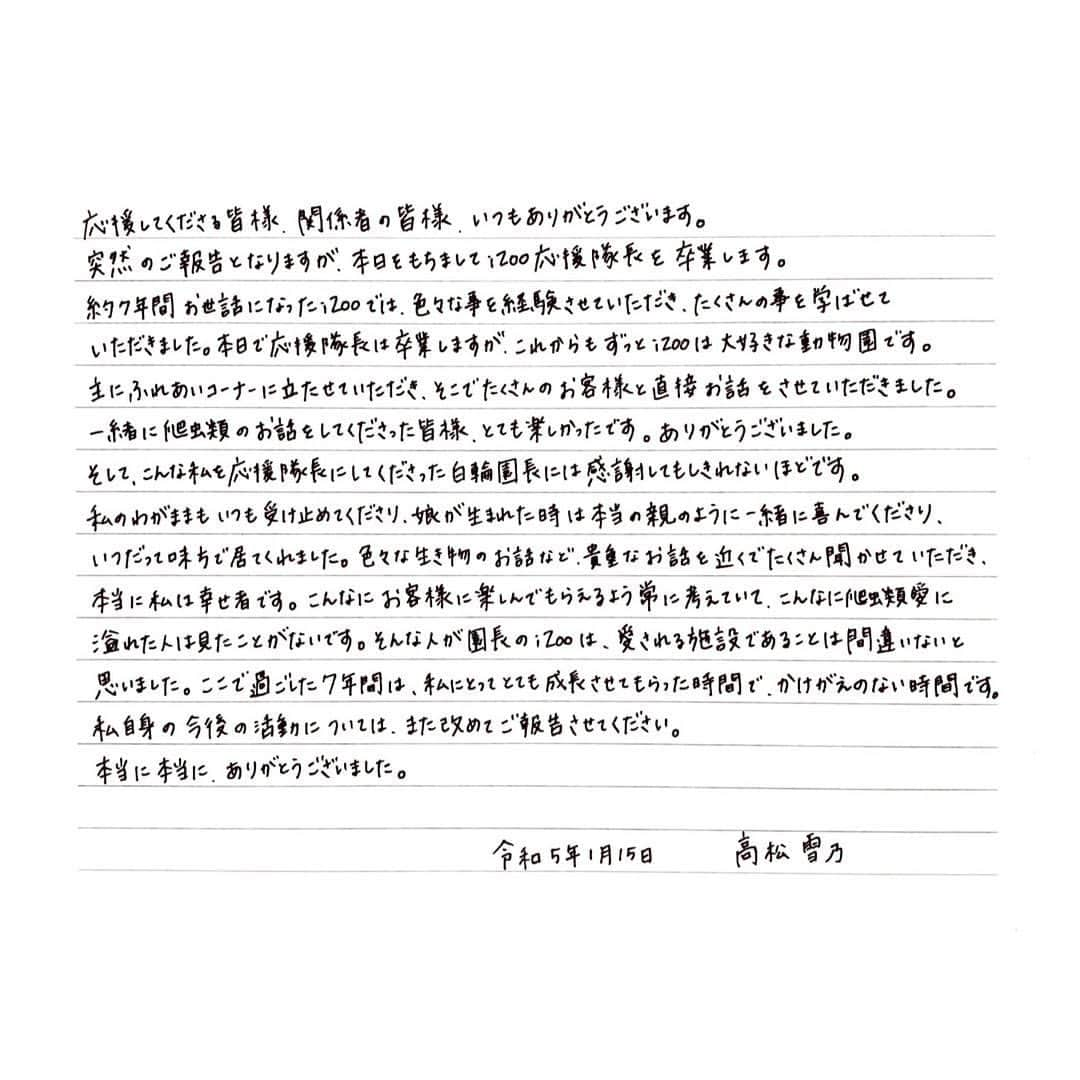 応援してくださる皆様、関係者の皆様、いつもありがとうございます。
突然のご報告となりますが、本日をもちましてiZoo応援隊長を卒業します。
約7年間お世話になったiZooでは、色々な事を経験させていただき、たくさんの事を学ばせて
いただきました。本日で応援隊長は卒業しますが、これからもずっとiZooは大好きな動物園です。
主にふれあいコーナーに立たせていただき、そこでたくさんのお客様と直接お話をさせていただきました。
一緒に爬虫類のお話をしてくださった皆様、とても楽しかったです。ありがとうございました。
そして、こんな私を応援隊長にしてくださった白輪園長には感謝してもしきれないほどです。
私のわがままもいつも受け止めてくださり、娘が生まれた時は本当の親のように一緒に喜んでくださり、
いつだって味方で居てくれました。色々な生き物のお話など、貴重なお話を近くでたくさん聞かせていただき、
本当に私は幸せ者です。こんなにお客様に楽しんでもらえるよう常に考えていて、こんなに爬虫類愛に
溢れた人は見たことがないです。そんな人が園長のiZooは、愛される施設であることは間違いないと
思いました。ここで過ごした7年間は、私にとってとても成長させてもらった時間で、かけがえのない時間です。
私自身の今後の活動については、また改めてご報告させてください。
本当に本当に、ありがとうございました。
令和5年1月15日 高松雪乃